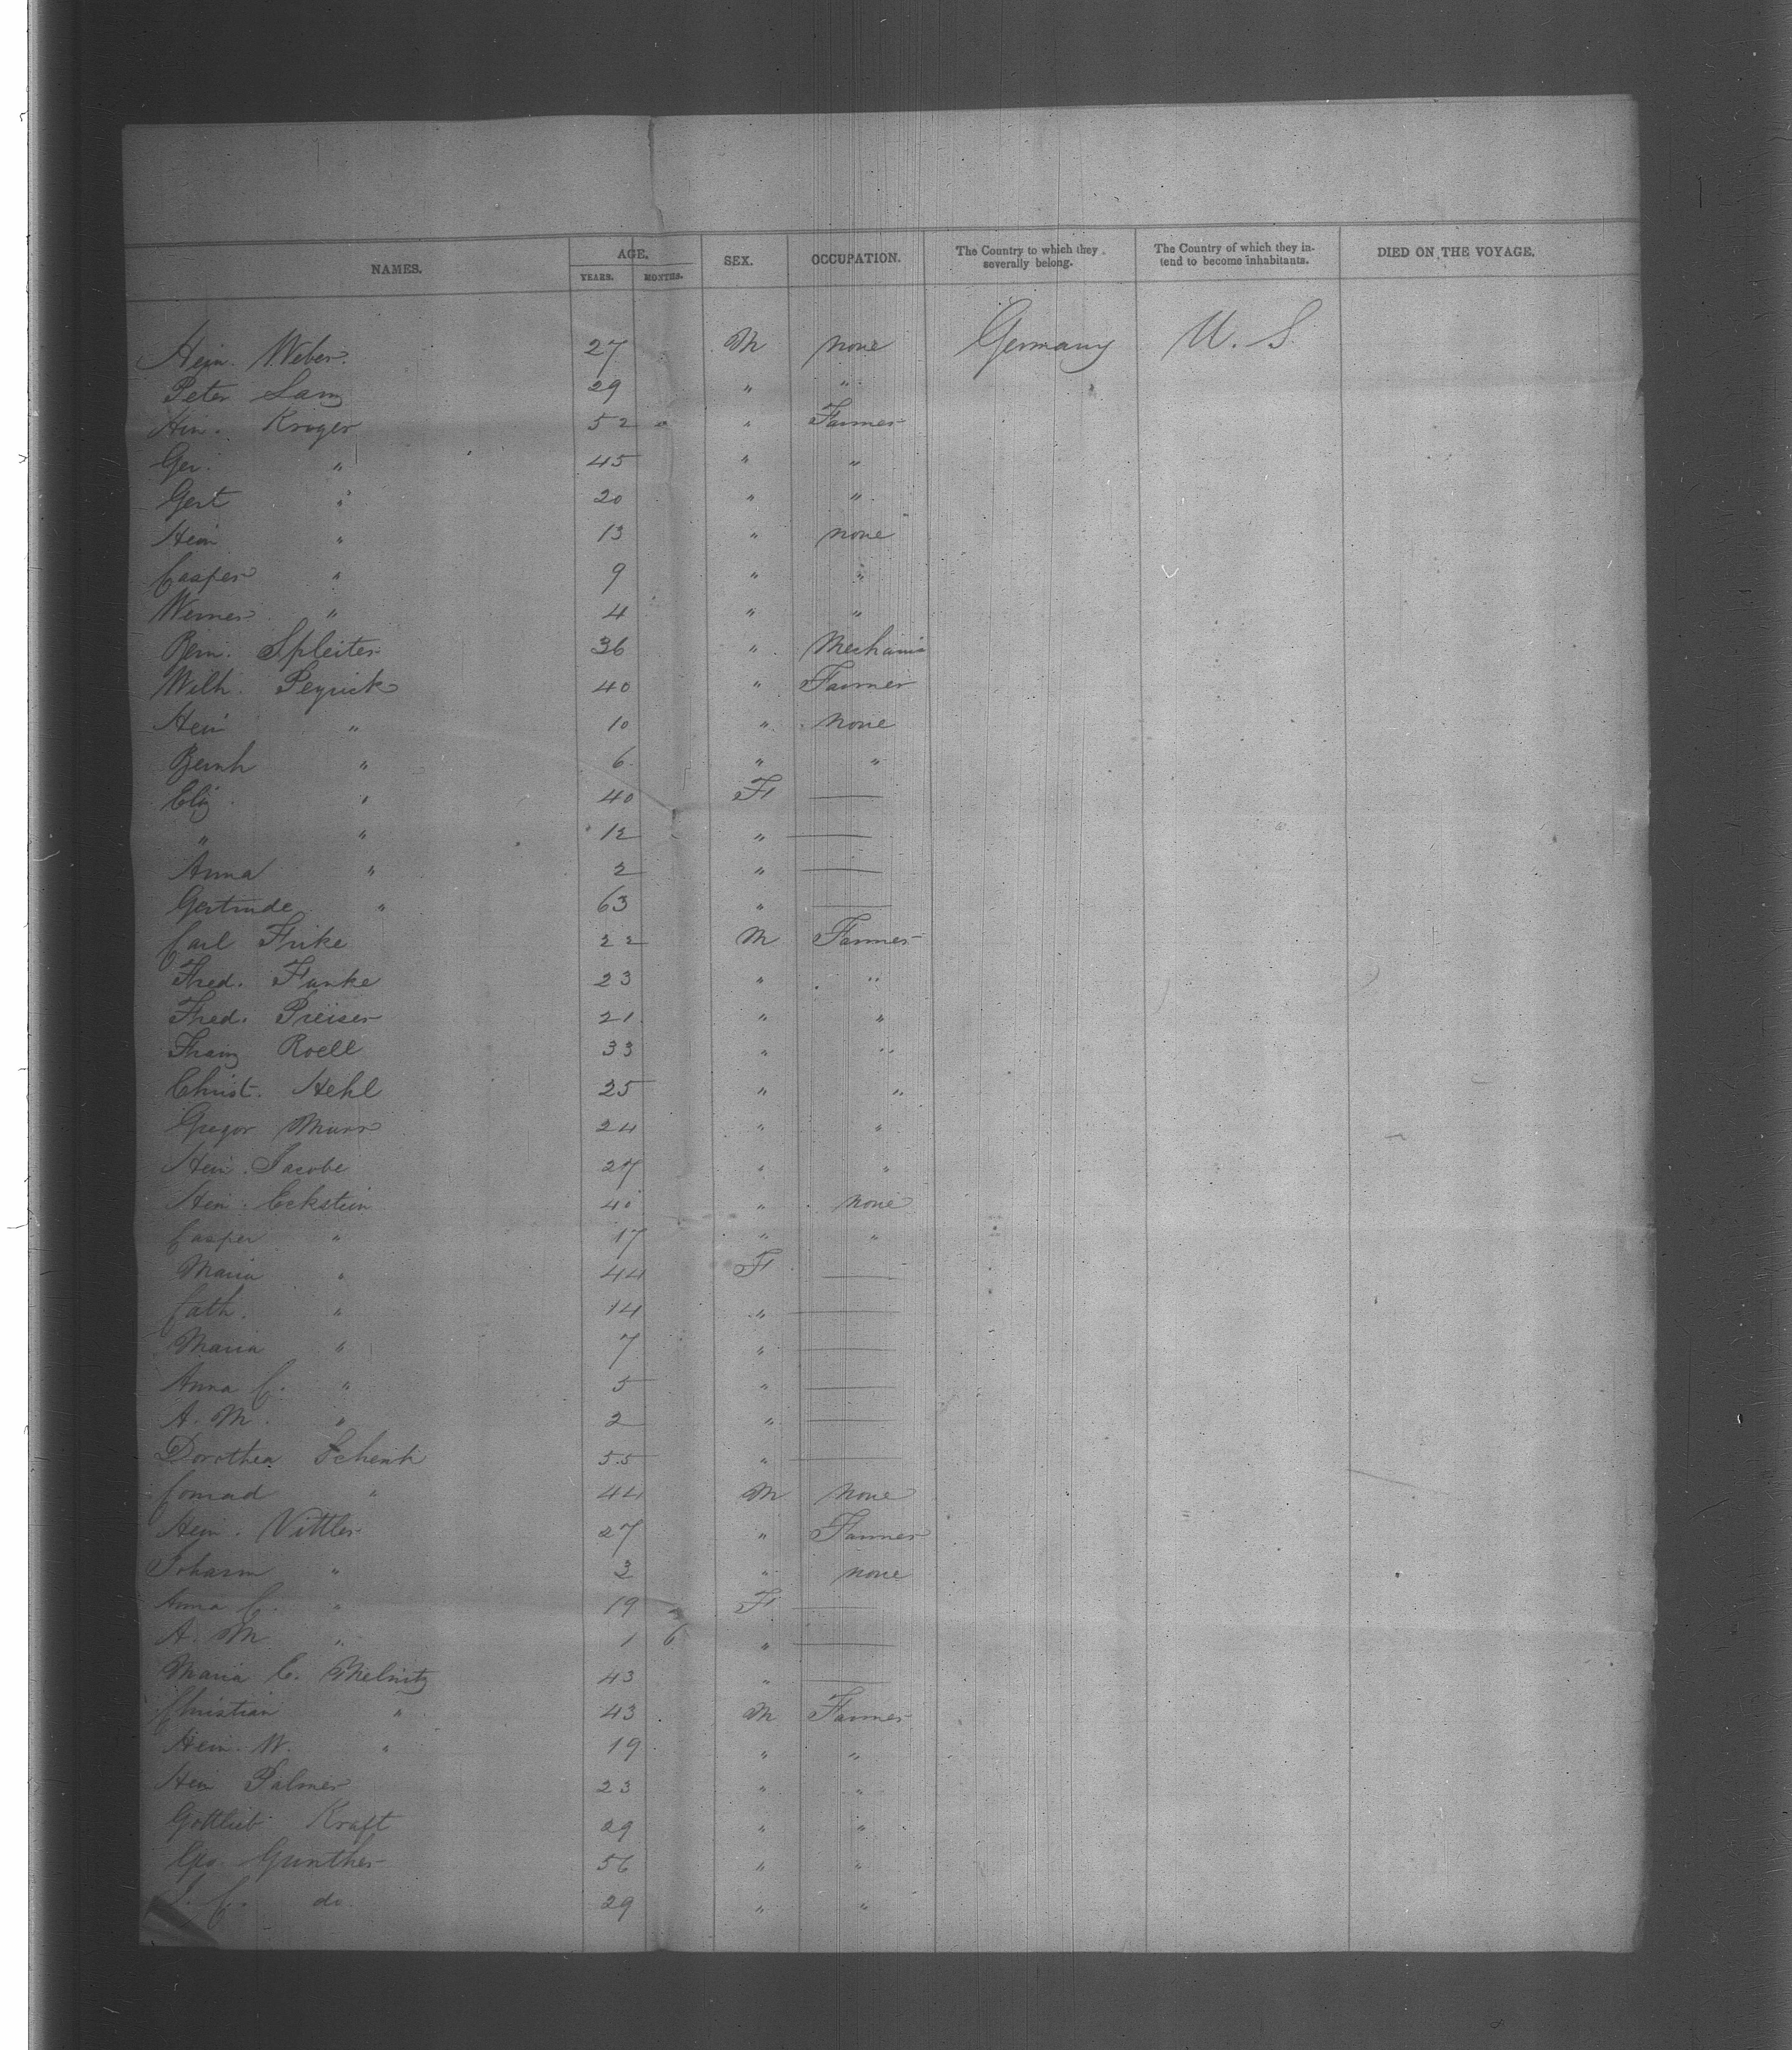 NAMES. AGE. SEX. OCCUPATION. The Country to which they severally belong. The Country of which they intend to become inhabitants. DIED ON THE VOYAGE.
YEARS. MONTHS.
Hein. Weber. 27 M none Germany U. S.
Peter Lanz 29 " "
Hein. Kruger 52 " Farmer
Ger. " 45 " "
Gert " 20 " "
Hein " 13 " none
Casper " 9 " "
Werner " 4 " "
Bern. Spleiter 36 " Mechanic
Wilh. Peyrick 40 " Farmer
Hein " 10 " none
Bernh " 6 " "
Eliz. " 40 F —
" " 12 " —
Anna " 2 " —
Gertrude " 63 " —
Carl Frike 22 M Farmer
Fred. Funke 23 " "
Fred. Preiser 21 " "
Franz Roell 33 " "
Christ. Hehl 25 " "
Gregor Murr 24 " "
Hein. Jacobe 27 " "
Hein. Eckstein 40 " none
Casper " 17 " "
Maria " 44 F —
Cath. " 14 " —
Maria " 7 " —
Anna C. " 5 " —
A. M. " 2 " —
Dorothea Schenk 55 " —
Conrad " 44 M none
Hein. Vittler 27 " Farmer
Johann " 3 " none
Anna C. " 19 F —
A. M " 1 6 " —
Maria C. Melnitz 43 " —
Christian " 43 M Farmer
Hein. W. " 19 " "
Hein Palmer 23 " "
Gottlieb Kraft 29 " "
Geo. Gunther 56 " "
C. do. 29 " "